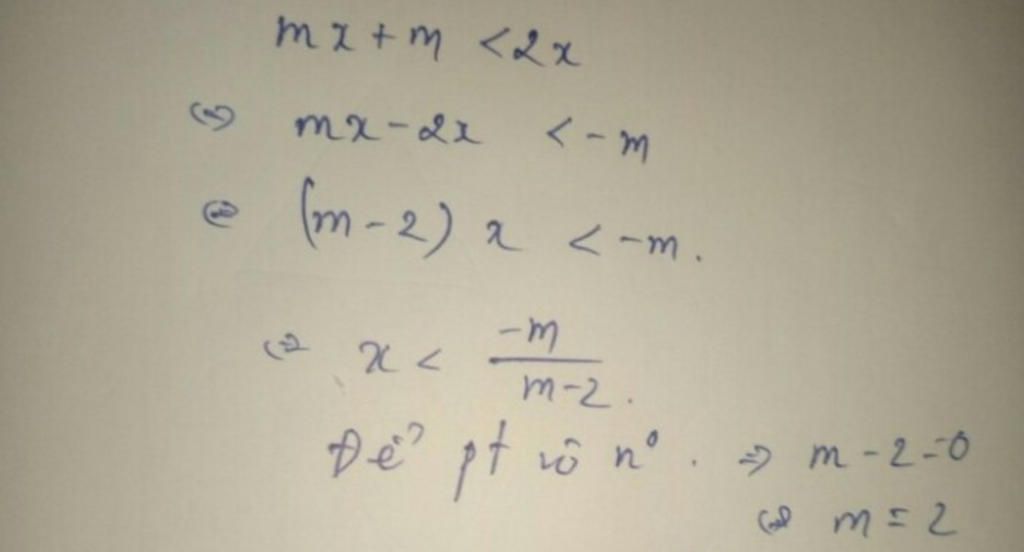 mx + m < 2x
⇔ mx - 2x < -m
⇔ (m - 2) x < -m.
⇔ x < -m / m-2.
Để pt vô n⁰. ⇒ m - 2 = 0
⇔ m = 2